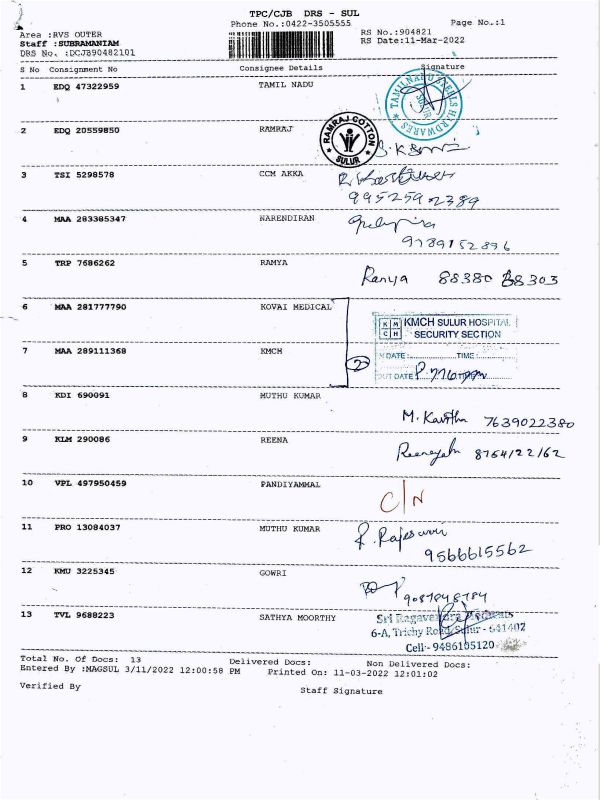 TPC/CJB DRS - SUL
Phone No.:0422-3505555
Page No.:1
Area :RVS OUTER
RS No.:904821
Staff :SUBRAMANIAM
RS Date:11-Mar-2022
DRS No. :DCJB90482101
S No Consignment No Consignee Details Signature
1 EDQ 47322959 TAMIL NADU
TAMILNADU STEELS HARDWARES
2 EDQ 20559850 RAMRAJ
RAMRAJ COTTON
SULUR
3 TSI 5298578 CCM AKKA
9952592389
4 MAA 283385347 NARENDIRAN
9789152896
5 TRP 7686262 RAMYA
Ramya 88380 88303
6 MAA 281777790 KOVAI MEDICAL
K M C H KMCH SULUR HOSPITAL
SECURITY SECTION
7 MAA 289111368 KMCH
2
DATE: TIME:
OUT DATE
8 KDI 690091 MUTHU KUMAR
M. 7639022380
9 KLM 290086 REENA
8764122162
10 VPL 497950459 PANDIYAMMAL
C/N
11 PRO 13084037 MUTHU KUMAR
R. Rajeswari
9566615562
12 KMU 3225345 GOWRI
9087848784
13 TVL 9688223 SATHYA MOORTHY
Sri Ragavendra
6-A, Trichy Road, Sulur - 641402
Cell:- 9486105120
Total No. Of Docs: 13 Delivered Docs: Non Delivered Docs:
Entered By :MAGSUL 3/11/2022 12:00:58 PM Printed On: 11-03-2022 12:01:02
Verified By Staff Signature